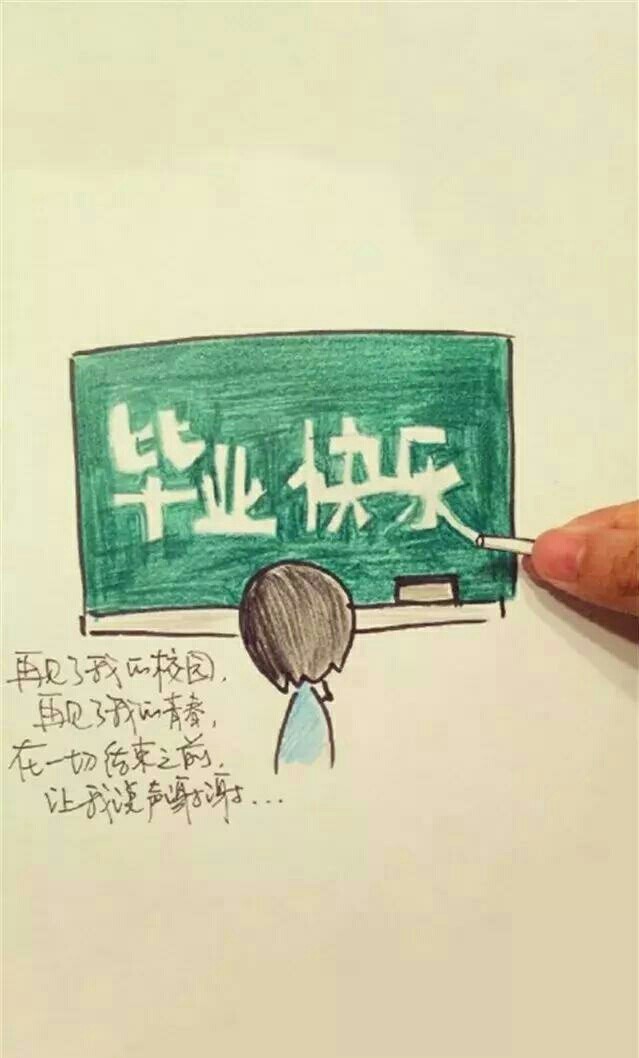 毕业快乐
再见了我的校园,
再见了我的青春,
在一切结束之前,
让我说声谢谢...